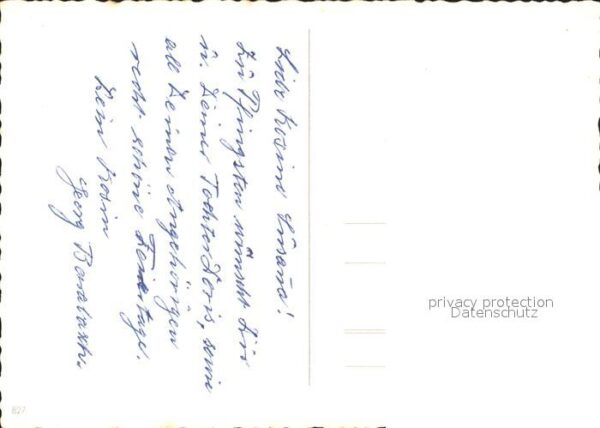 Liebe Kosine Susana!
Zu Pfingsten wünscht Dir
u. Deiner Tochter Doris, sowie
all Deinen Angehörigen
recht schöne Feiertage.
Dein Kosin
Georg
privacy protection
Datenschutz
827